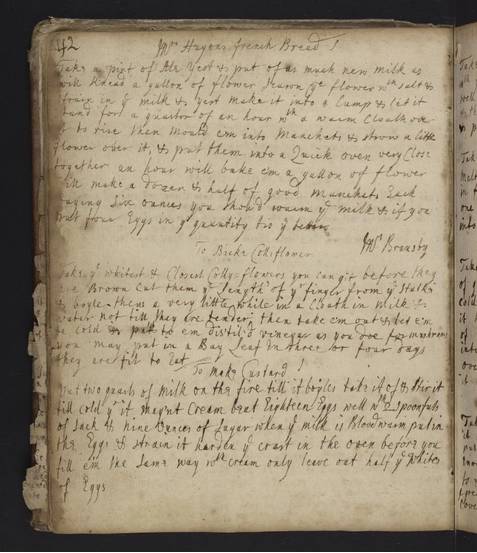 42
Mrs Hayons french Bread
Take a pint of Ale Yest & put of as much new milk as
will knead a gallon of flower season ye flower wth salt &
strain in ye milk & yest make it into a Lump & let it
stand for a quarter of an hour wth a warm Cloath over
it to rise then mould em into Manchats & strow a little
flower over it, & put them into a Quick oven very Close
together an hour will bake em a gallon of flower
will make a dozen & half of good Manchats Each
waying Six ounces you should warm ye milk & if you
put four Eggs in ye quantity tis ye better
To Pickle Colliflower Mrs Brensby
Take ye whitest & Closest Colly-flowers you can git before they
are Brown Cut them ye length of yr finger from ye stalks
& boyle them a very little while in a Cloath in milk &
water not till they are tender, then take em out & let em
be cold & put to em distil'd vinegar as you doe for mushrooms
you may put in a Bay Leaf in three or four days
they are fit to Eat
To make Custard
Put two quarts of milk on the fire till it boyles take it of & stir it
till cold yt it mayn't Cream beat Eighteen Eggs well wth 2 spoonfuls
of Sack & nine Ounces of Sugar when ye milk is Bloodwarm put in
the Eggs & strain it harden ye crust in the oven before you
fill em the same way wth cream only leave out half ye whites
of Eggs